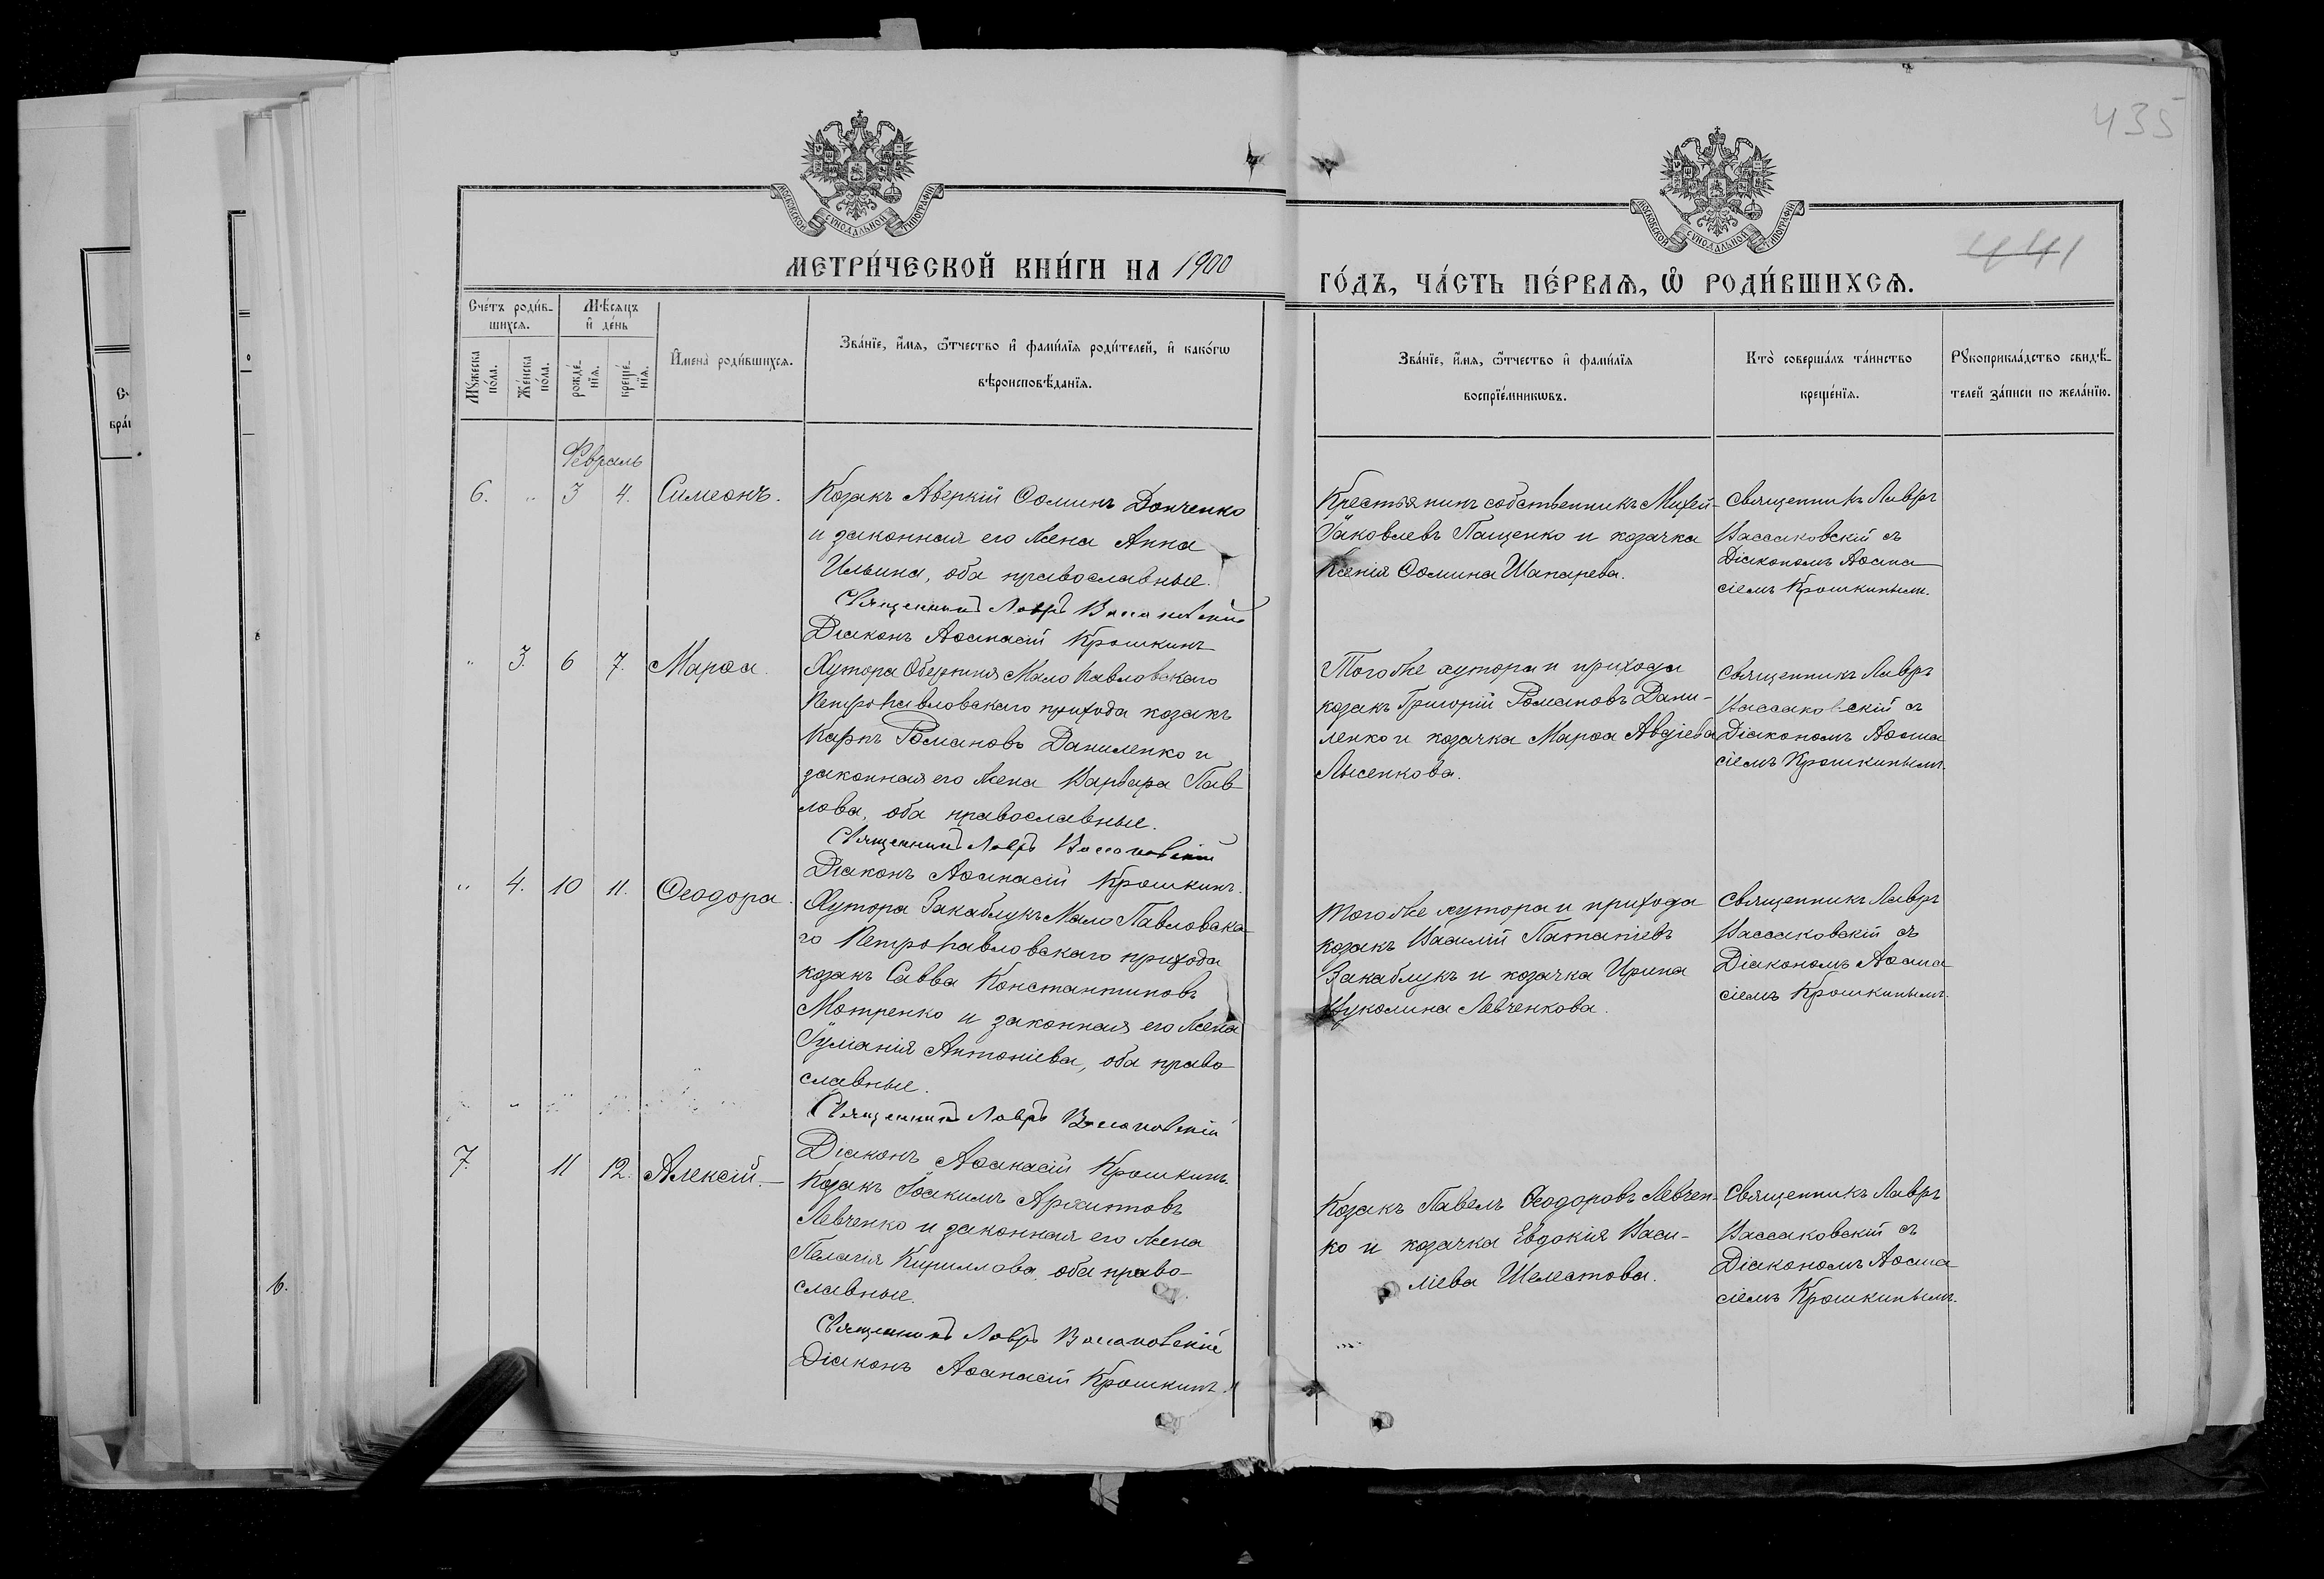 435
МОСКОВСКОЙ СѴНОДАЛЬНОЙ ТИПОГРАФІИ
МОСКОВСКОЙ СѴНОДАЛЬНОЙ ТИПОГРАФІИ
441
МЕТРИ́ЧЕСКОЙ КНИ́ГИ НА 1900
ГО́ДЪ, ЧА́СТЬ ПЕ́РВАѦ, Ѡ҆ РОДИ́ВШИХСѦ.
Сче́тъ роди́в-
шихсѧ.
Мѣ́сѧцъ
и҆ де́нь
Мꙋ́жеска
по́ла.
Же́нска
по́ла.
рожде́-
нїѧ.
креще́-
нїѧ.
И҆мена̀ роди́вшихсѧ.
Зва́нїе, и҆́мѧ, ѻ҆́тчество и҆ фами́лїѧ роди́телей, и҆ како́гѡ
вѣроисповѣ́данїѧ.
Зва́нїе, и҆́мѧ, ѻ҆́тчество и҆ фами́лїѧ
воспрїе́мникѡвъ.
Кто̀ соверша́лъ та́инство
креще́нїѧ.
Рꙋкоприкла́дство свидѣ́-
телей за́писи по жела́нїю.
Февраль
6. " 3 4. Симеонъ.
Козакъ Аверкій Ѳоминъ Донченко
и законная его жена Анна
Ильина, оба православные.
Священникъ Лавръ Вассаковскій
Діаконъ Аѳанасій Крошкинъ
Крестьянинъ собственникъ Михей
Іаковлевъ Пащенко и козачка
Ксенія Ѳомина Шапарева.
Священникъ Лавръ
Вассаковскій съ
Діакономъ Аѳана
сіемъ Крошкинымъ.
" 3. 6 7. Марѳа.
Хутора Мало Павловскаго
Петропавловскаго прихода козакъ
Карпъ Романовъ Даниленко и
законная его жена Варвара Пав
лова, оба православные.
Священникъ Лавръ Вассаковскій
Діаконъ Аѳанасій Крошкинъ.
Того же хутора и прихода
козакъ Григорій Романовъ Дани-
ленко и козачка Марѳа Авдіева
Лысенкова.
Священникъ Лавръ
Вассаковскій съ
Діакономъ Аѳана
сіемъ Крошкинымъ.
" 4. 10 11. Ѳеодора.
Хутора Закаблукъ Мало Павловска
го Петропавловскаго прихода
козакъ Савва Константиновъ
Мотренко и законная его жена
Іуліанія Антоніева, оба право
славные.
Священникъ Лавръ Вассаковскій
Діаконъ Аѳанасій Крошкинъ.
Того же хутора и прихода
козакъ Василій Патапіевъ
Закаблукъ и козачка Ирина
Никулина Левченкова.
Священникъ Лавръ
Вассаковскій съ
Діакономъ Аѳана
сіемъ Крошкинымъ.
7. 11 12. Алексій.
Козакъ Іоакимъ Архиповъ
Левченко и законная его жена
Пелагія Кириллова, оба право-
славные.
Священникъ Лавръ Вассаковскій
Діаконъ Аѳанасій Крошкинъ.
Козакъ Павелъ Ѳеодоровъ Левчен-
ко и козачка Евдокія Васи-
ліева Шелестова.
Священникъ Лавръ
Вассаковскій съ
Діакономъ Аѳана
сіемъ Крошкинымъ.